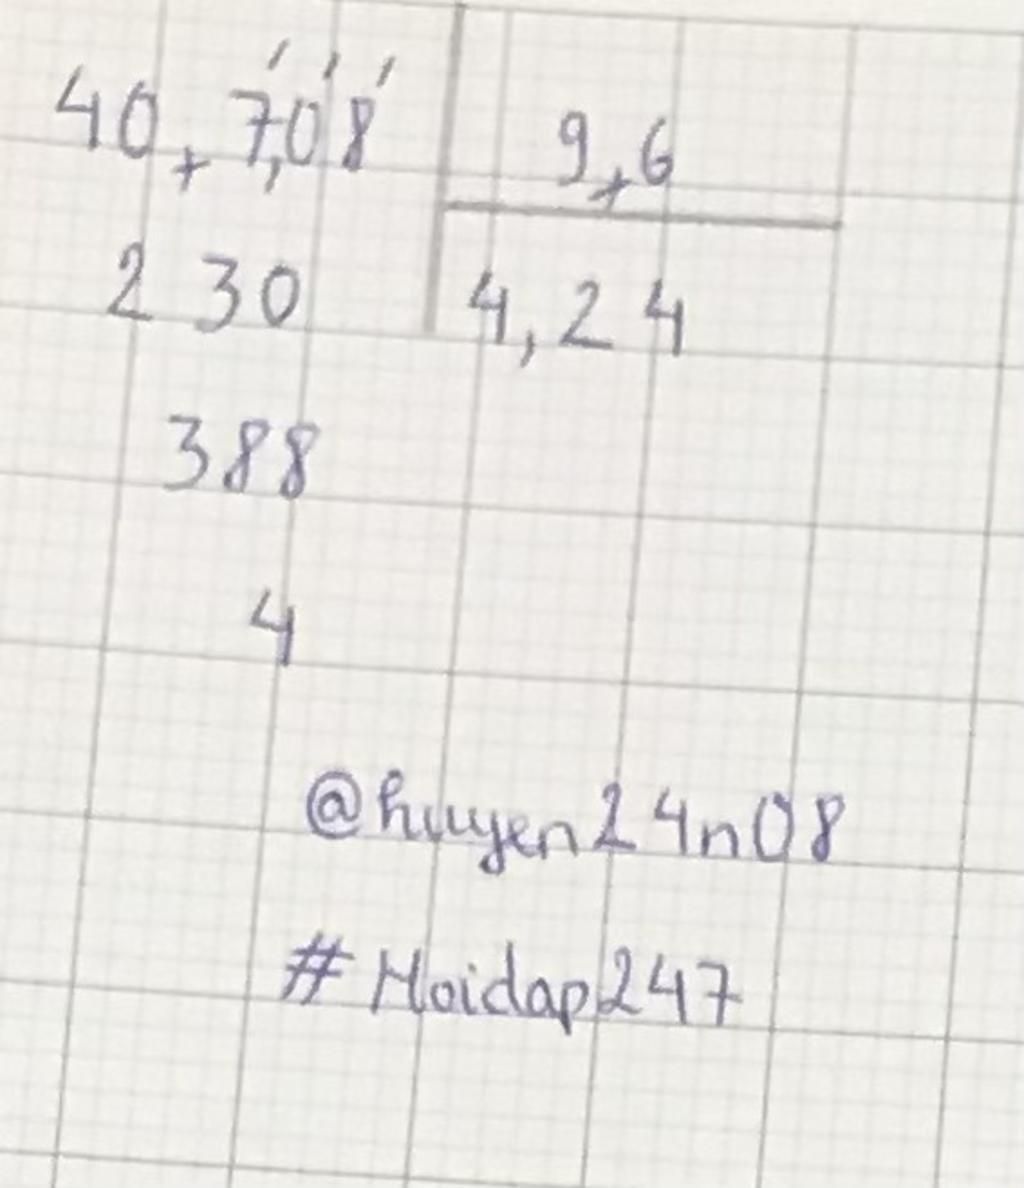 40,7,08 9,6
230 4,24
388
4
@huyen24n08
#Hoidap247